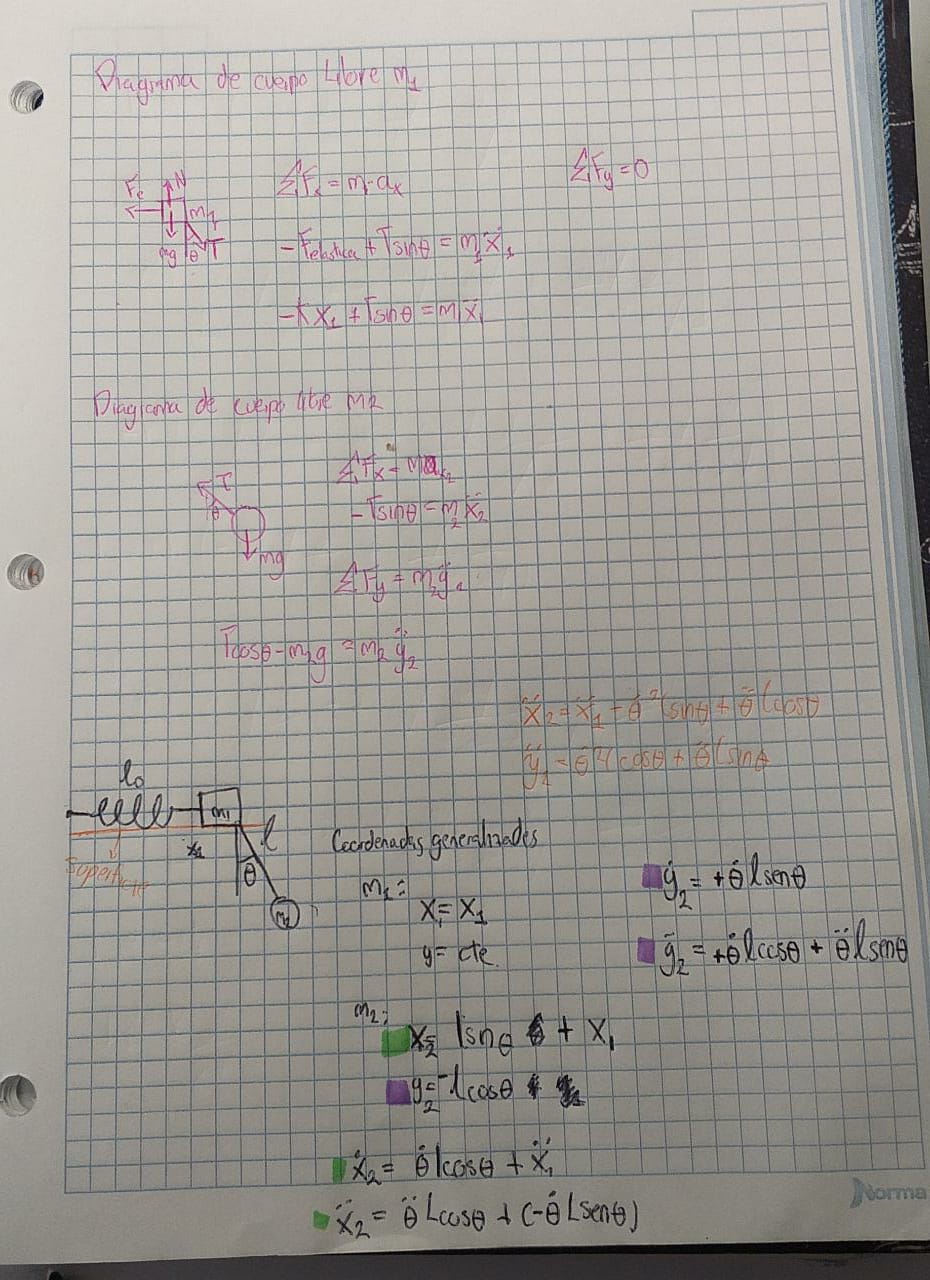 Diagrama de cuerpo Libre m₁
Fe N
m₁
mg θ T
ΣFₓ = m·aₓ
ΣFy = 0
-Felastica + Tsinθ = m₁ẍ₁
-Kx₁ + Tsinθ = m₁ẍ₁
Diagrama de cuerpo libre m2
T
θ
mg
ΣFx = maₓ₂
-Tsinθ = m₂ẍ₂
ΣFy = m₂ÿ₂
Tcosθ - m₂g = m₂ÿ₂
ẍ₂ = ẍ₁ - θ̇²lsinθ + θ̈lcosθ
ÿ₁ = θ̇²lcosθ + θ̈lsinθ
l₀
m₁
l
x₁
superficie
θ
m₂
Coordenadas generalizadas
m₁:
x₁ = x₁
y = cte.
ẏ₂ = +θ̇lsenθ
ÿ₂ = +θ̇lcosθ + θ̈lsenθ
m₂:
x₂ = lsnθ + x₁
y₂ = -lcosθ
ẋ₂ = θ̇lcosθ + ẍ₁
ẍ₂ = θ̈Lcosθ + (-θ̇Lsenθ)
Norma